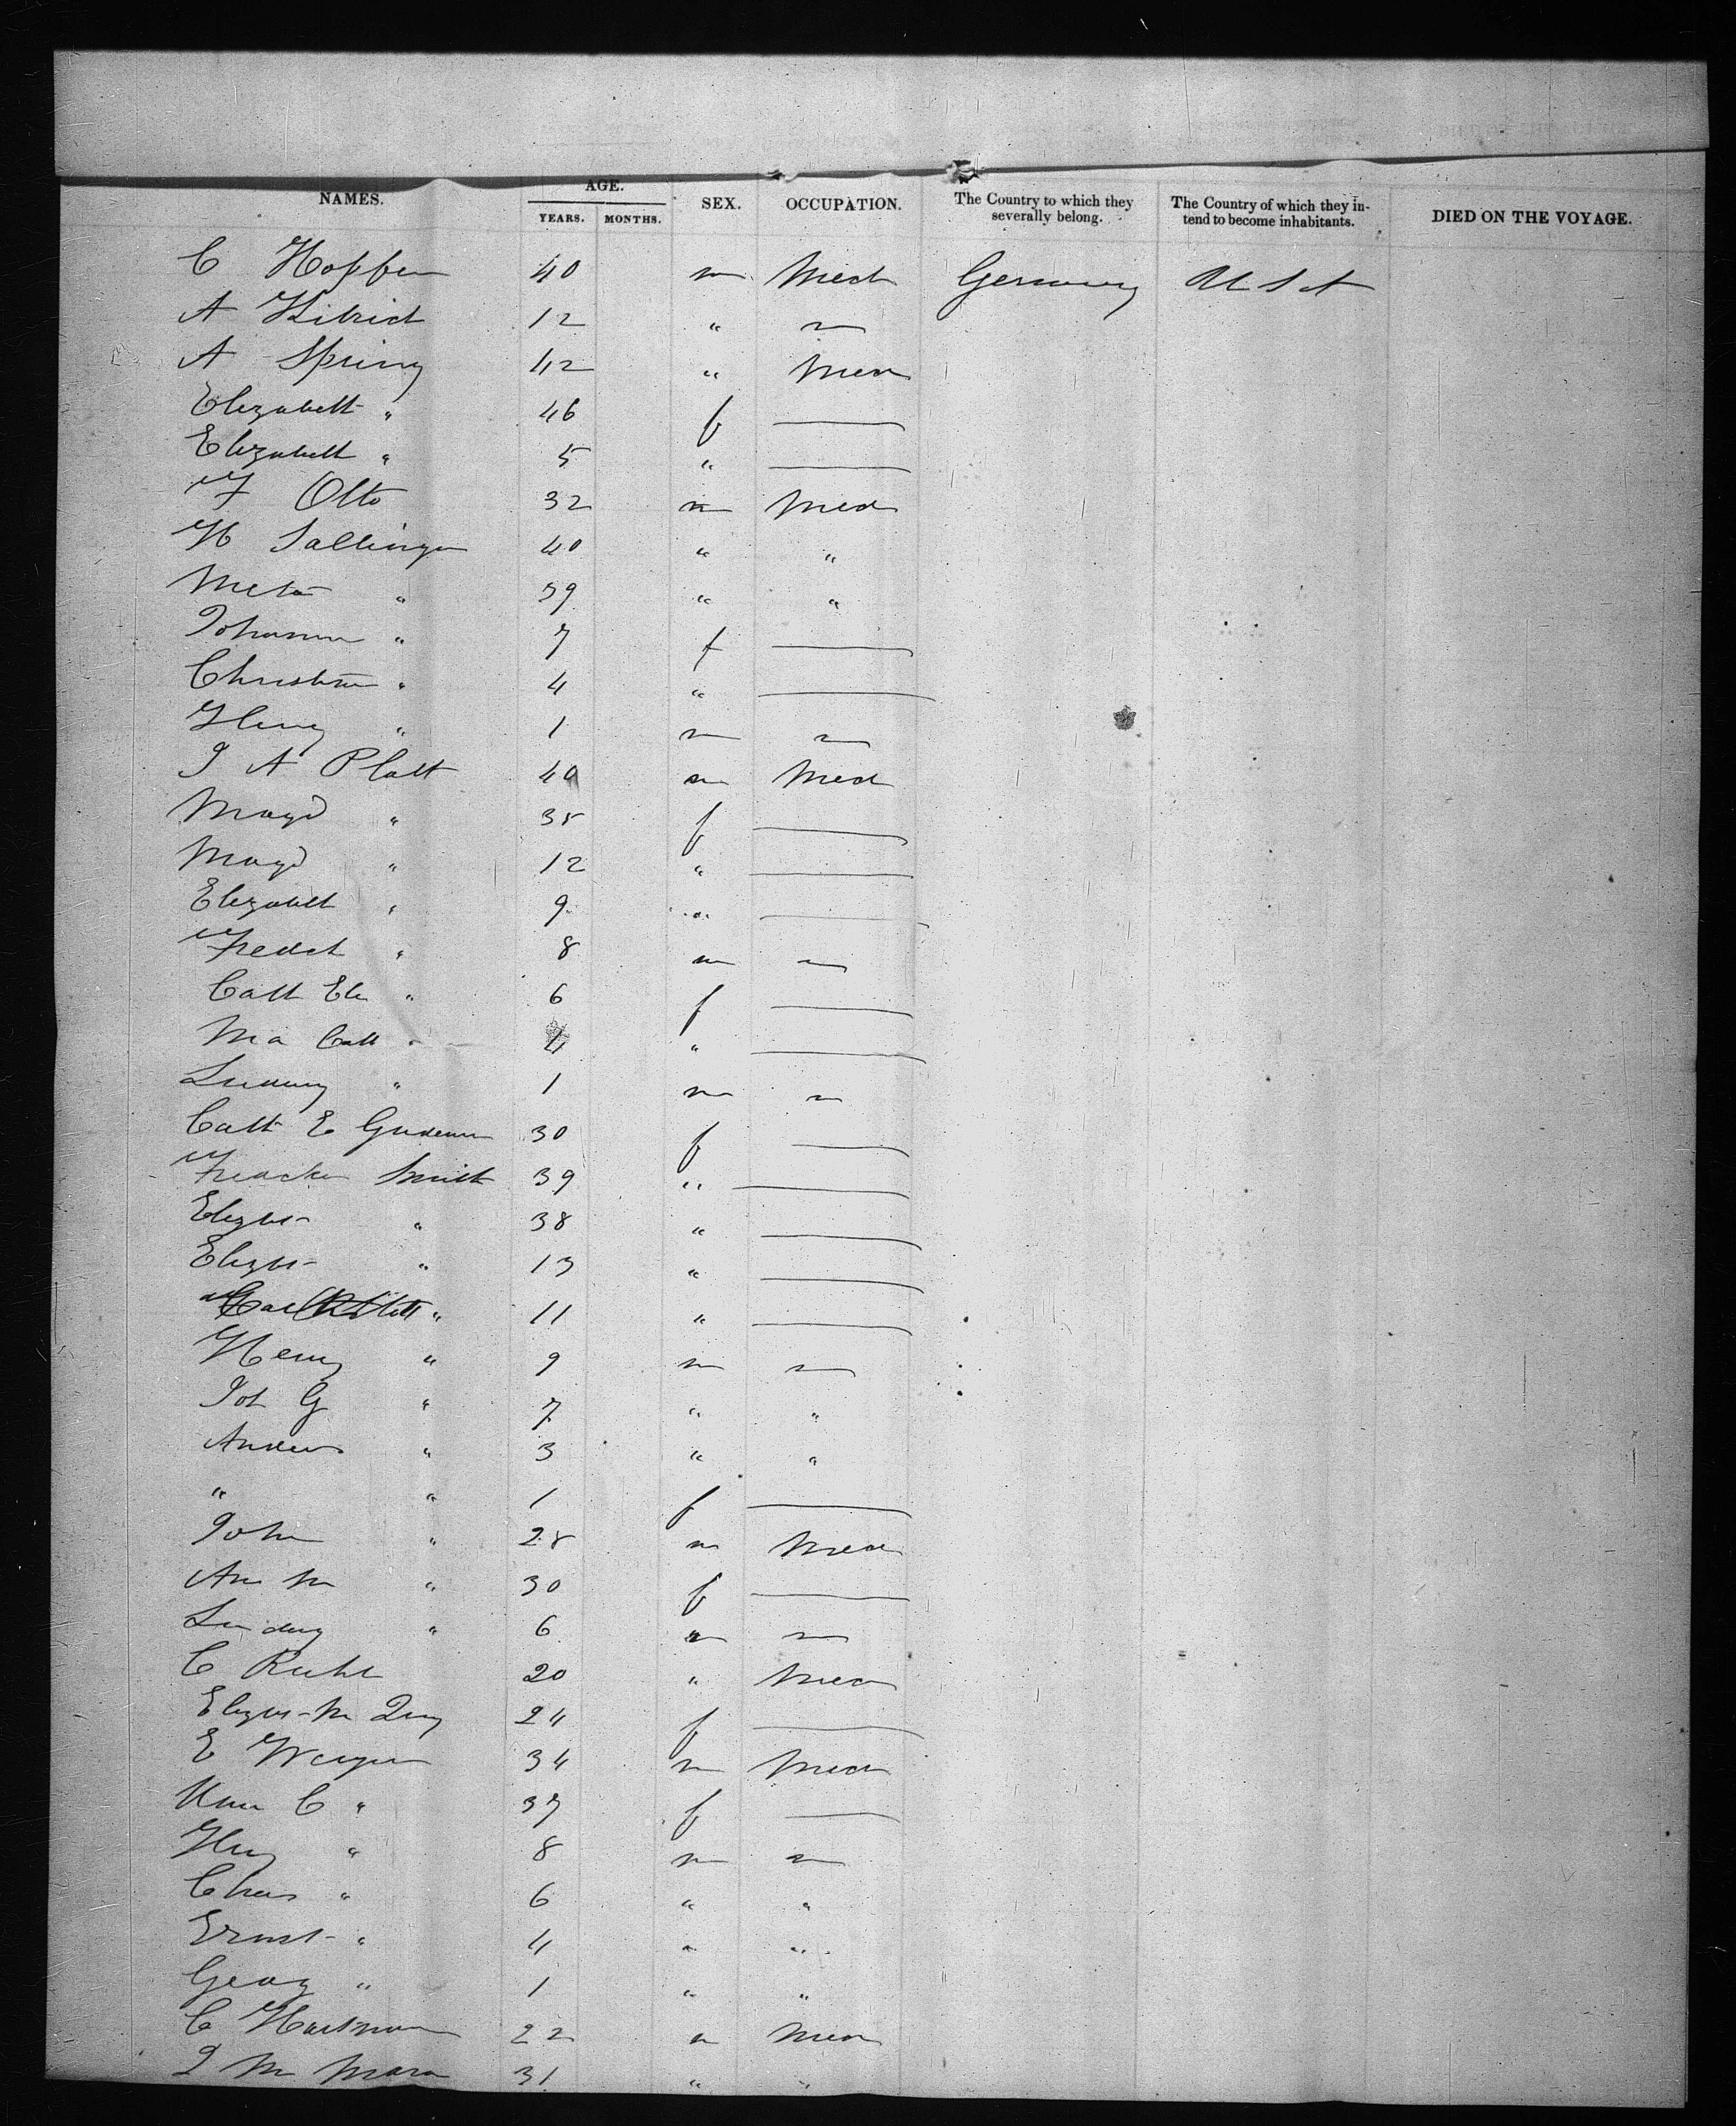 NAMES. AGE. YEARS. MONTHS. SEX. OCCUPATION. The Country to which they severally belong. The Country of which they intend to become inhabitants. DIED ON THE VOYAGE.
C Hoffen 40 m Mech Germany U S A
A 12 " m
A Spring 42 " Mech
Elizabeth " 46 f
Elizabeth " 5 "
F Otto 32 m Mech
H Sallinger 40 " "
Meta " 39 " "
Johanna " 7 f
Christine " 4 "
Henry " 1 m m
J A Platt 40 m Mech
Magd " 35 f
Magd " 12 "
Elizabeth " 9 "
Friedch " 8 m m
Cath Ele " 6 f
Ma Cath " 4 "
Ludwig " 1 m m
Cath E 30 f
Smith 39 "
Elizbs " 38 "
Elizbs " 13 "
" 11 "
Henry " 9 m m
Joh G " 7 " "
Andrew " 3 " "
" " 1 f
John " 28 m Mech
An M " 30 f
Ludwig " 6 m m
C Ruhl 20 " Mech
Elizbs M 24 f
E 34 m Mech
C " 37 f
Henry " 8 m m
Chas " 6 " "
Ernst " 4 " "
Georg " 1 " "
C Hartman 22 m Mech
J M 31 " "